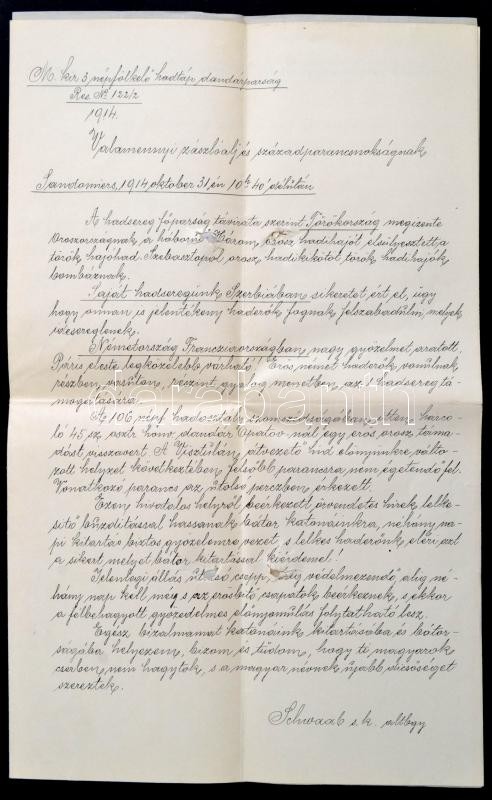 M. kir. 3. népfölkelő hadtáp dandárparság
Res. № 122/2
1914.
Valamennyi zászlóalj és századparancsnokságnak
Sandomierz, 1914 október 31 én 10h 40' délután
A hadsereg főparság távirata szerint Törökország megizente
Oroszországnak a háborút. Három orosz hadihajót elsülyesztett a
török hajóhad. Szebasztopol orosz hadikikötőt török hadihajók
bombáznak.
Saját hadseregünk Szerbiában sikeretet ért el, úgy
hogy onnan is jelentékeny haderők fognak felszabadulni, melyek
idesereglenek.
Németország Francziaországban nagy győzelmet aratott,
Páris eleste legközelebb várható. Erős német haderők vonulnak,
részben vasúton, részint gyalog menetben, az 1. hadsereg tá-
mogatására.
A 106 népf. hadosztály szomszédságában ottan harco-
ló 45 sz. osztr. honv. dandár Opatov-nál egy erős orosz táma-
dást visszavert. A Visztulán átvezető híd előnyünkre válto-
zott helyzet következtében felsőbb parancsra nem égetendő fel.
Vonatkozó parancs az utolsó perczben érkezett.
Ezen hivatalos helyről beérkezett örvendetes hírek lelke-
sítő buzdítással hassanak bátor katonáinkra, néhány na-
pi kitartás biztos győzelemre vezet s lelkes haderőnk eléri azt
a sikert melyet bátor kitartással kiérdemel!
Jelenlegi állás utolsó csepp vérig védelmezendő alig né-
hány nap kell még s az erősítő csapatok beérkeznek, s ekkor
a félbehagyott győzedelmes előnyomulás folytatható lesz.
Egész bizalmamat katonáink kitartásába és bátor-
ságába helyezem, bízom és tudom, hogy ti magyarok
cserben nem hagytok, s a magyar névnek újabb dicsőséget
szereztek.
Schwaab s.k. altbgy
darabanth